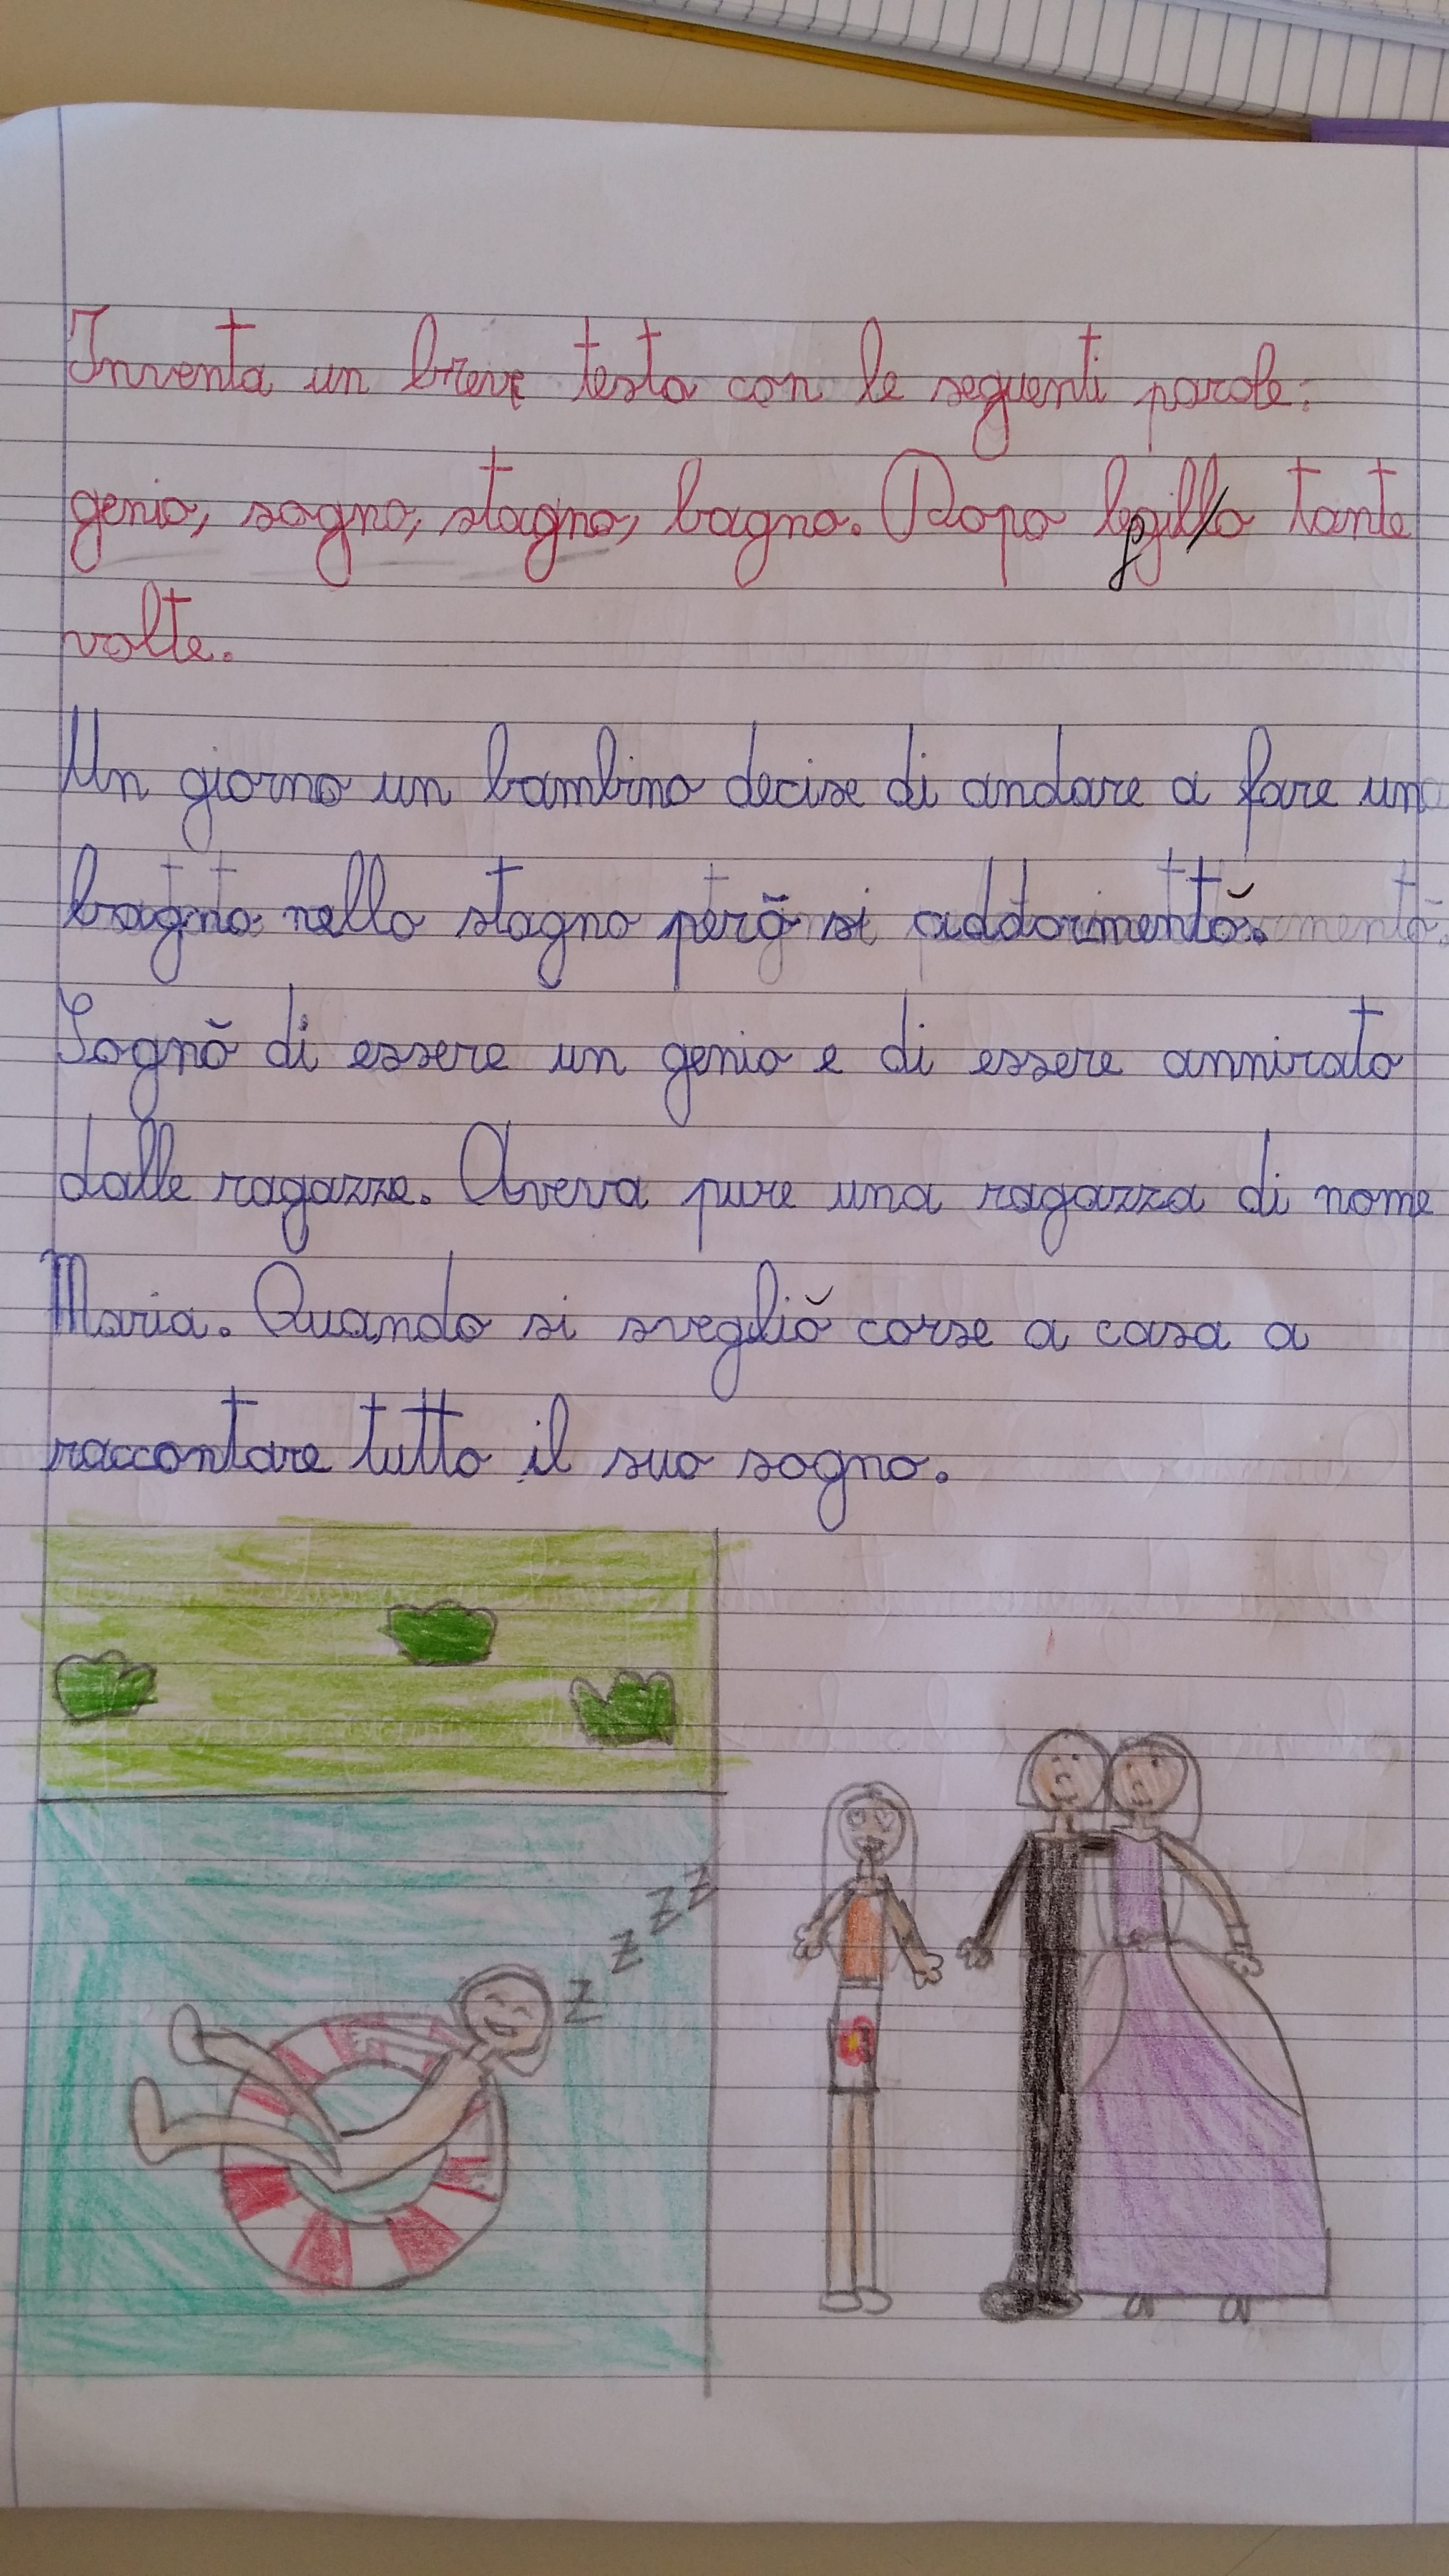 Inventa un breve testo con le seguenti parole:
genio, sogno, stagno, bagno. Dopo leggilo tante
volte.
Un giorno un bambino decise di andare a fare un
bagno nello stagno però si addormentò.
Sognò di essere un genio e di essere annirato
dalle ragazze. Aveva pure una ragazza di nome
Maria. Quando si svegliò corse a casa a
raccontare tutto il suo sogno.
z z z z